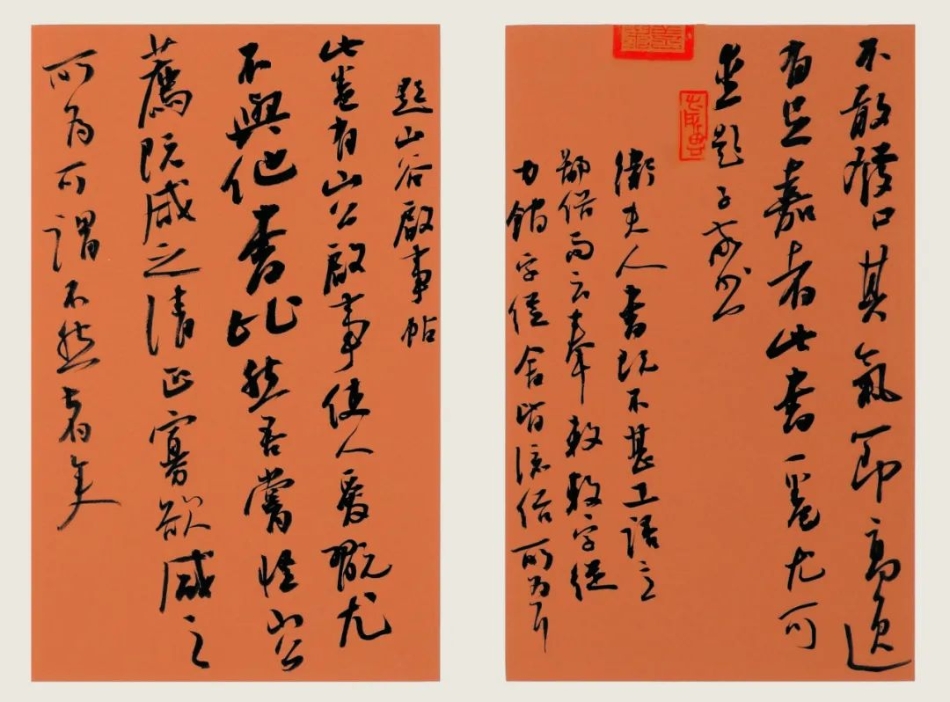 不敢發口其氣節高逸
有足嘉者此書一卷尤可
愛題子敬書
衛夫人書既不甚工語意
鄙俗而云奉敕敕字從
力館字從舍皆流俗所為耳
題山谷啟事帖
此卷有山公啟事使人愛翫尤
不與他書比然吾嘗怪山公
薦阮咸之清正寡欲咸之
所為可謂不然者矣